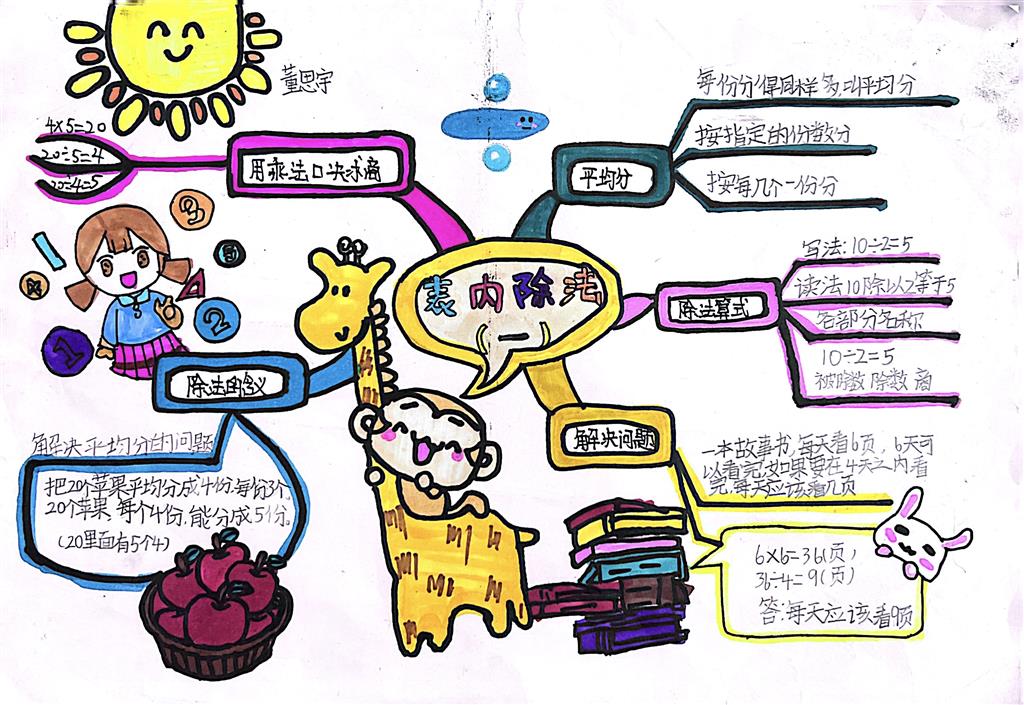 董思宇
表内除法
(一)
用乘法口决求商
4×5=20
20÷5=4
20÷4=5
平均分
每份分得同样多,叫平均分
按指定的份数分
按每几个一份分
除法算式
写法:10÷2=5
读法10除以2等于5
各部分名称
10÷2=5
被除数 除数 商
解决问题
一本故事书,每天看6页,6天可
以看完,如果要在4天之内看
完,每天应该看几页
6×6=36(页)
36÷4=9(页)
答:每天应该看9页
除法的含义
解决平均分的问题
把20个苹果平均分成4份.每份
20个苹果,每个4份.能分成5份。
(20里面有5个4)
3
5
4
2
1